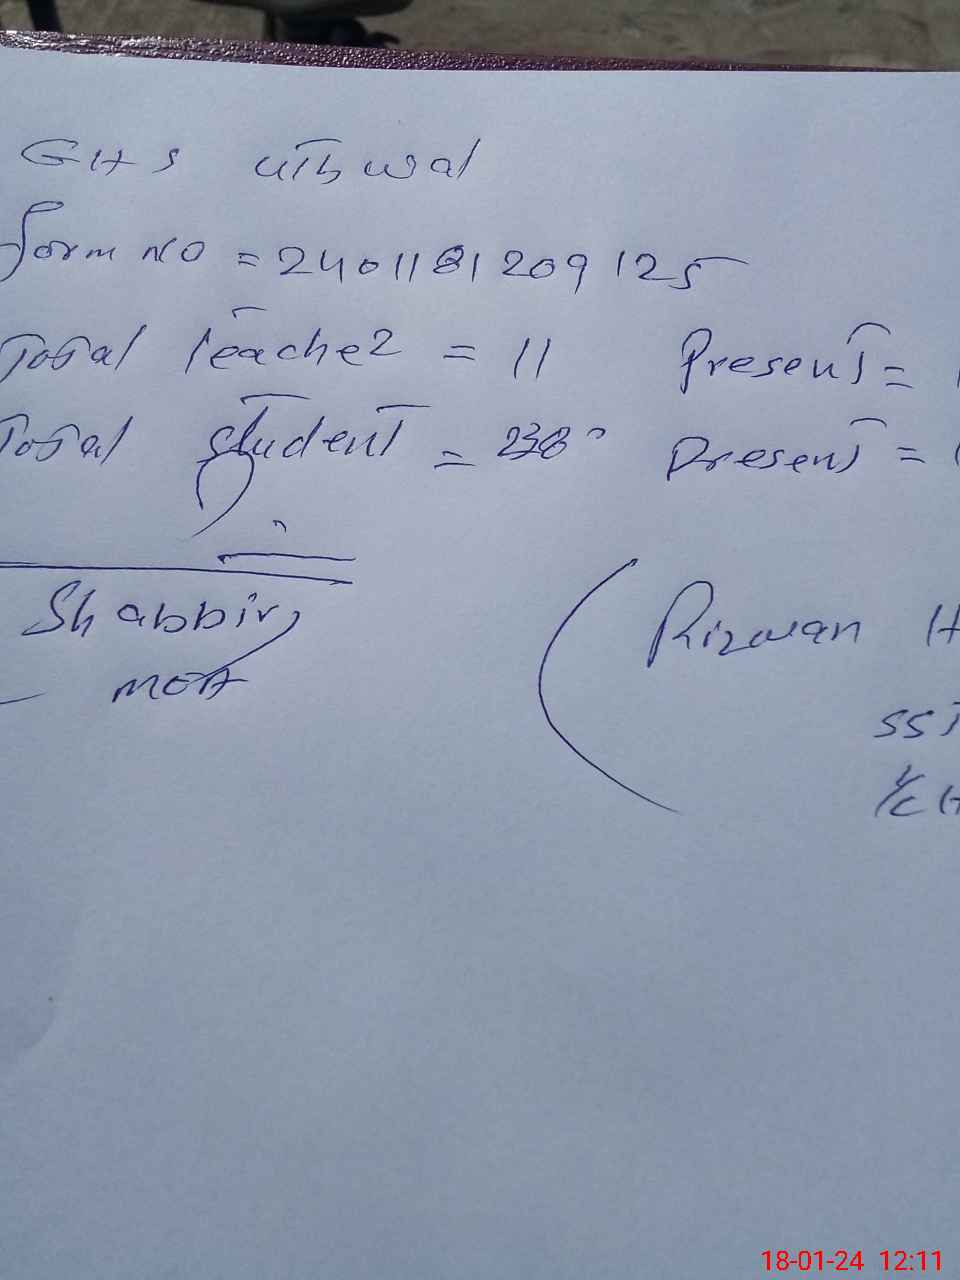 GHS Uthwal
Form No = 2401181209125
Total Teacher = 11 Present =
Total student = 238 Present =
Shabbir
MEA
(Rizwan H
SST
I/C H
18-01-24 12:11